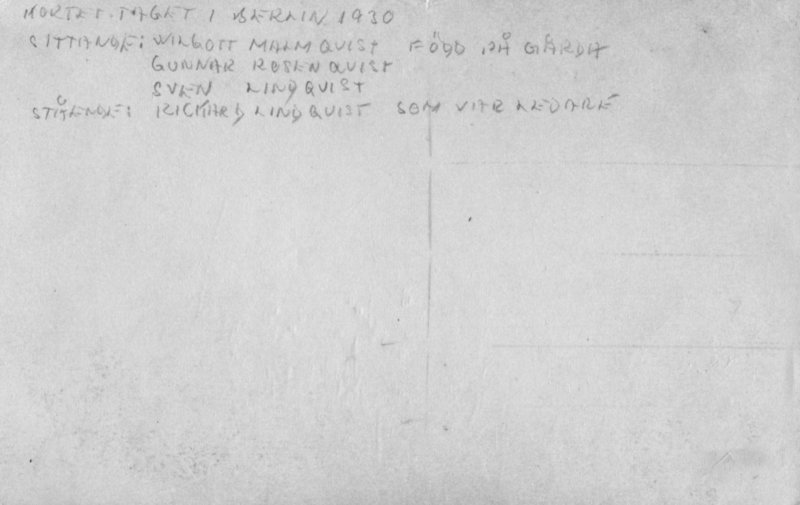 KORTET TAGET I BERLIN 1930
SITTANDE: WILGOTT MALMQUIST FÖDD PÅ GÅRDA
GUNNAR ROSENQUIST
SVEN LINDQUIST
STÅENDE: RICKARD LINDQUIST SOM VAR LEDARE